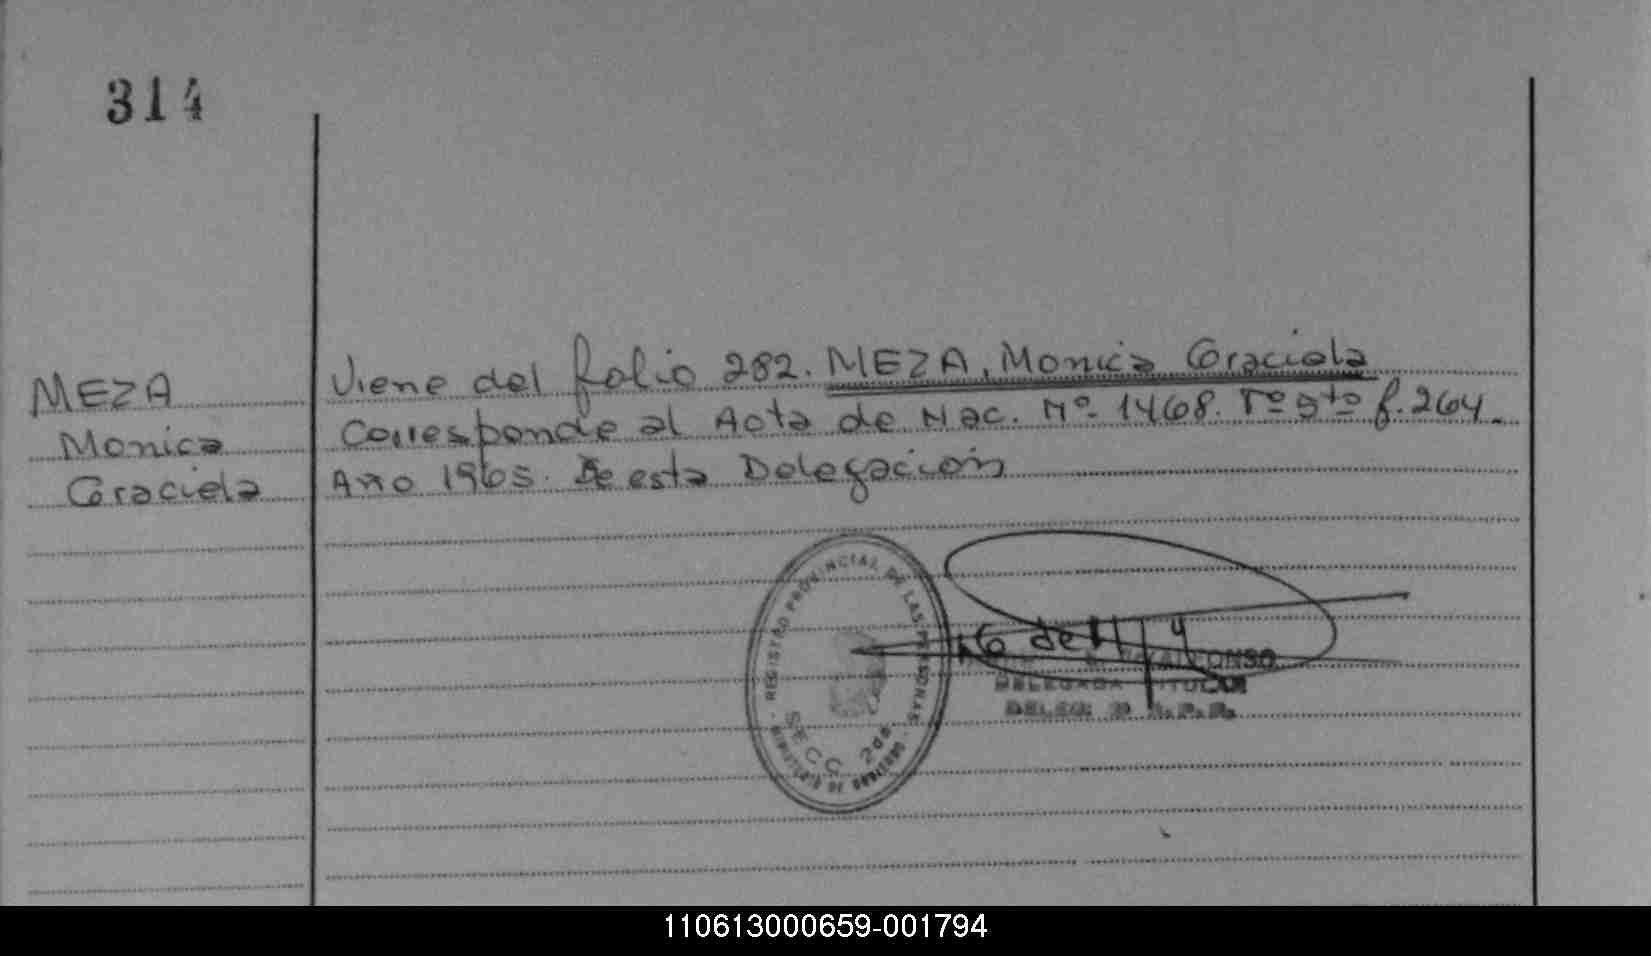 314
MEZA
Monica
Graciela
Viene del folio 282. MEZA, Monica Graciela
Corresponde al Acta de Nac. Nº 1468. Tº 5to f. 264.
Año 1965. De esta Delegación
REGISTRO PROVINCIAL DE LAS PERSONAS
SECC 20a
DELEGADA TITULAR
DELEG. R.P.P.
110613000659-001794